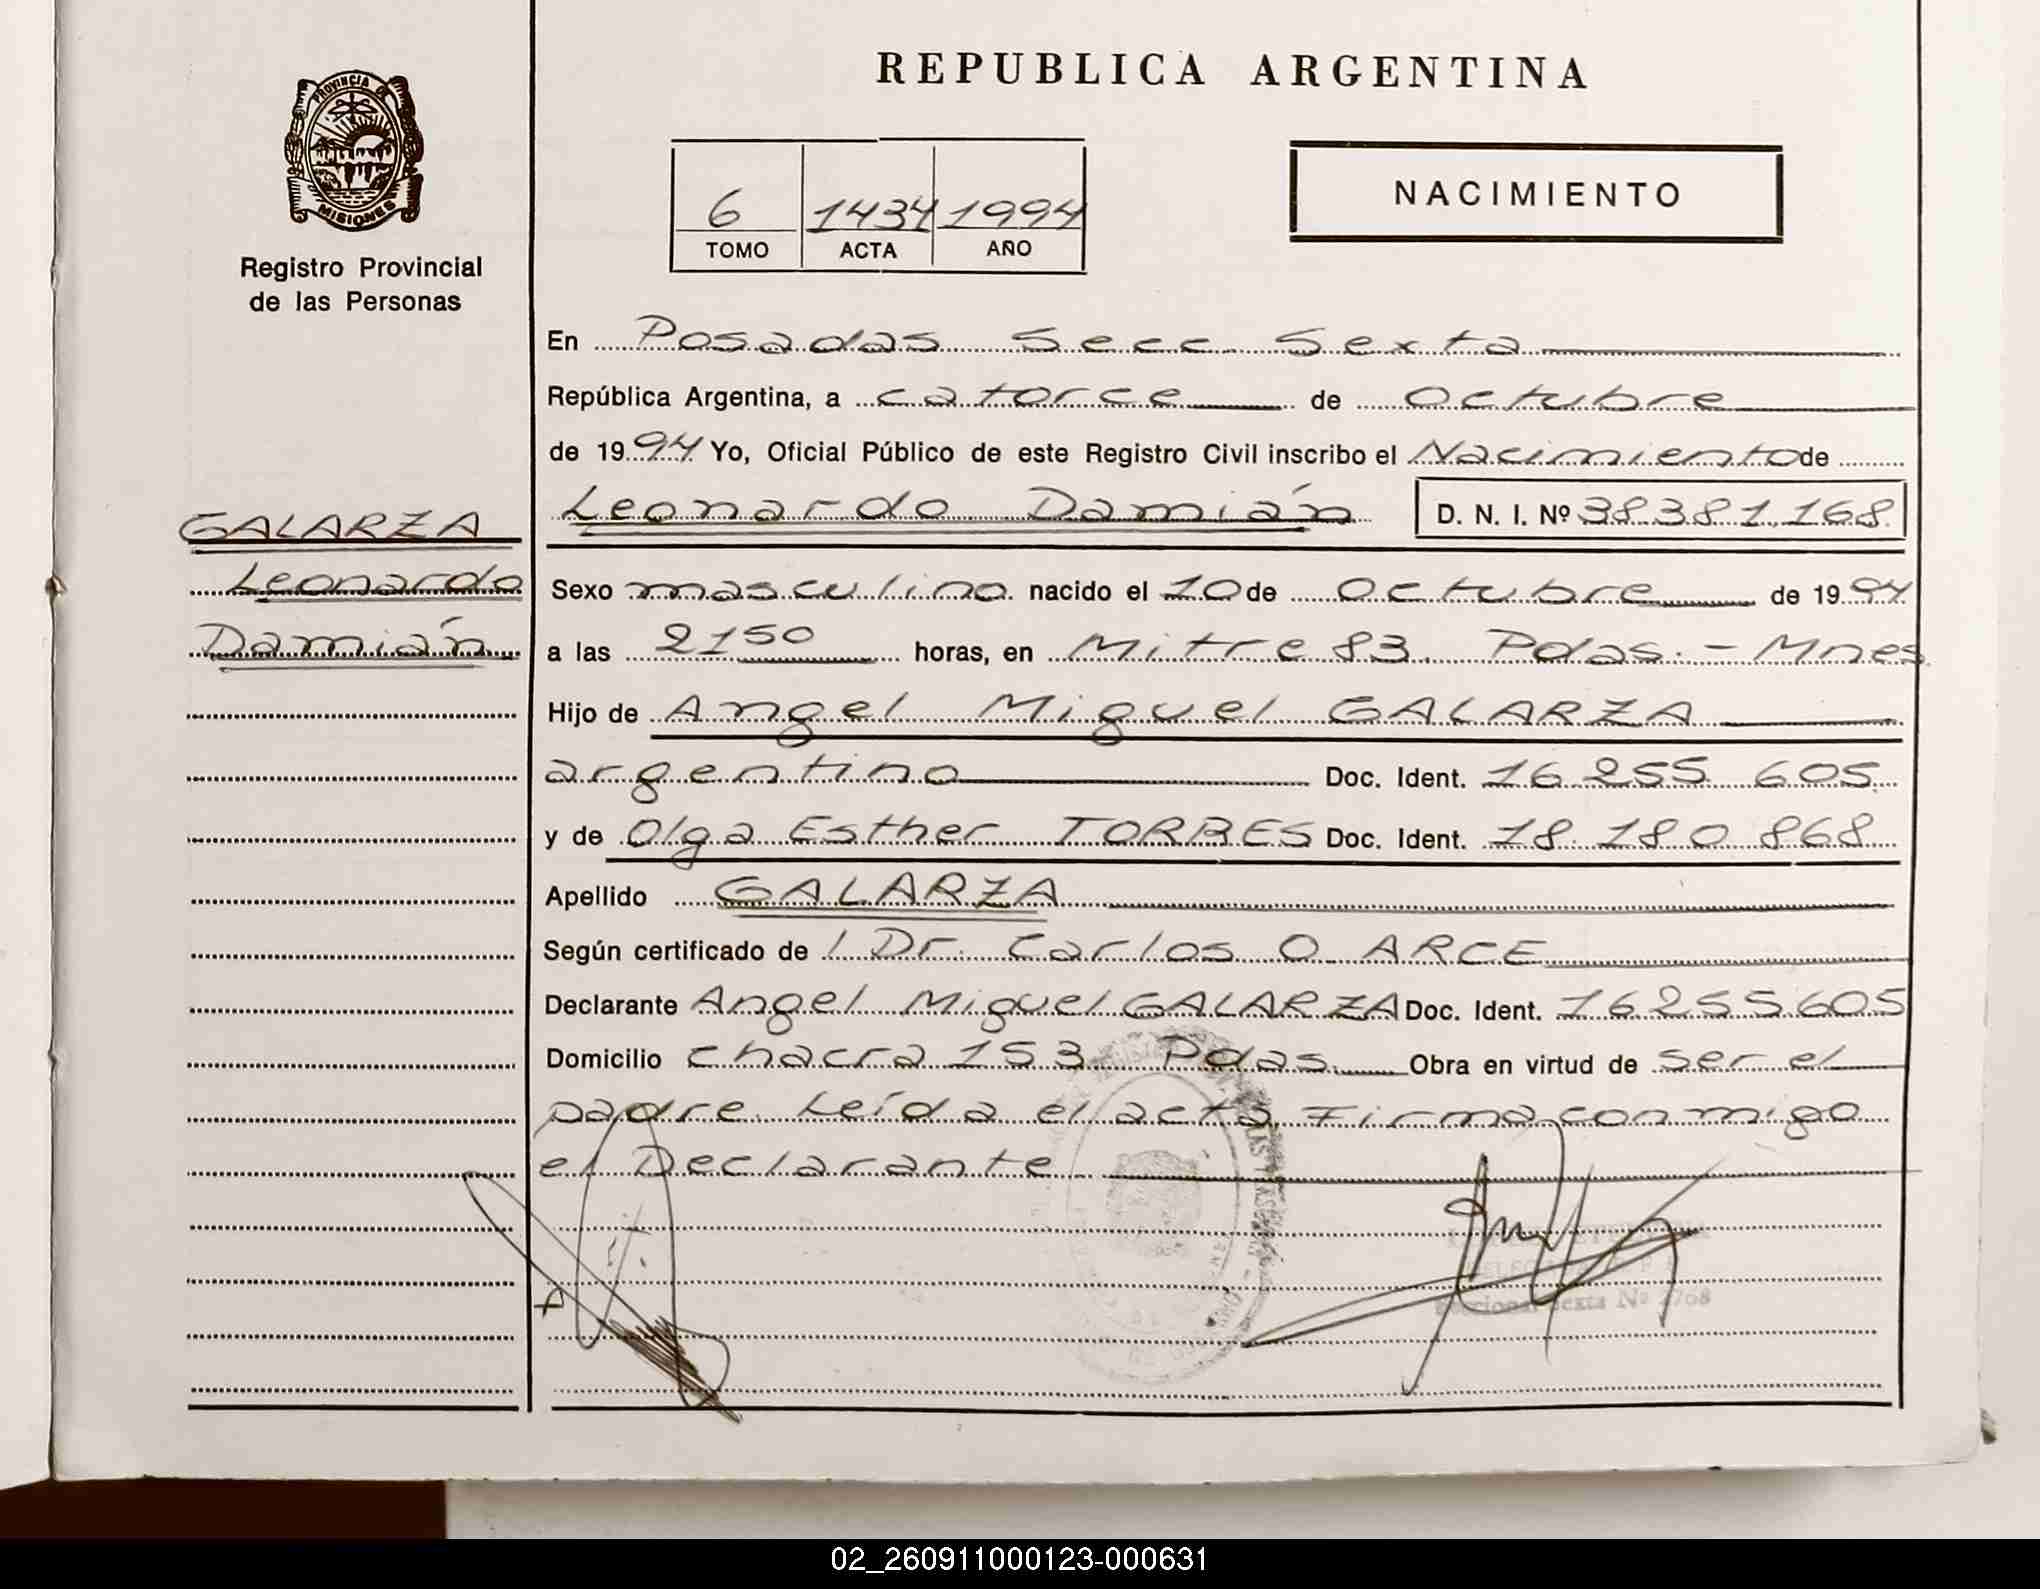 REPUBLICA ARGENTINA
PROVINCIA DE
MISIONES
Registro Provincial
de las Personas
6 1434 1994
TOMO ACTA AÑO
NACIMIENTO
En Posadas Secc Sexta
República Argentina, a catorce de Octubre
de 1994 Yo, Oficial Público de este Registro Civil inscribo el Nacimiento de
Leonardo Damián D. N. I. Nº 38.381.168
GALARZA
Leonardo
Damián
Sexo masculino nacido el 10 de Octubre de 1994
a las 2150 horas, en Mitre 83. Pdas. - Mnes
Hijo de Angel Miguel GALARZA
argentino Doc. Ident. 16.255 605
y de Olga Esther TORRES Doc. Ident. 18.180 868
Apellido GALARZA
Según certificado de / Dr. Carlos O ARCE
Declarante Angel Miguel GALARZA Doc. Ident. 16255605
Domicilio chacra 153 Pdas. Obra en virtud de ser el
padre. Leída el acta, Firma conmigo
el Declarante
Seccional Sexta Nº 2768
02_260911000123-000631